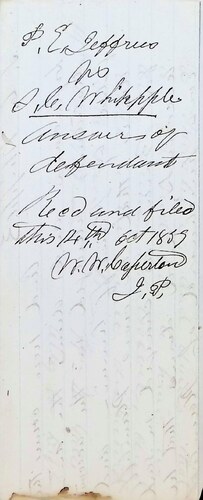 P. E. Jeffries
vs
S. C. Whipple
answer of
defendant
Recd and filed
this 14th Oct 1859
W. W. Caperton
J. P.